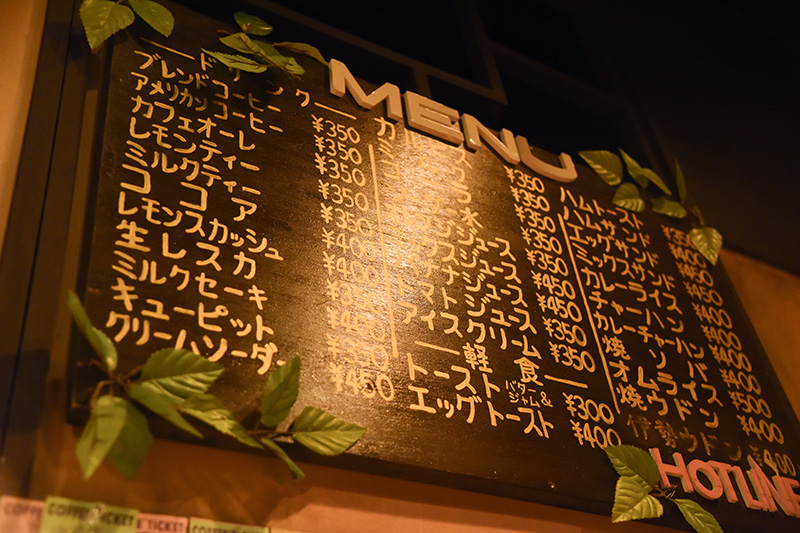 MENU
ードリンクー
ブレンドコーヒー ¥350
アメリカンコーヒー ¥350
カフェオーレ ¥350
レモンティー ¥350
ミルクティー ¥350
ココア ¥400
レモンスカッシュ ¥400
生レスカ ¥350
ミルクセーキ
キューピット ¥350
クリームソーダー ¥450
¥350
¥350
¥350
水 ¥350
ジュース ¥350
ジュース ¥450
バナナジュース ¥450
トマトジュース ¥350
アイスクリーム ¥350
ー軽食ー
トースト バター& ジャム ¥300
エッグトースト ¥400
ハムトースト ¥350
ハムサンド ¥400
エッグサンド
ミックスサンド ¥450
カレーライス
チャーハン ¥400
カレーチャーハン ¥400
焼ソバ ¥400
オムライス ¥500
焼ウドン ¥400
伊勢ウドン ¥400
HOTLINE
COFFEE TICKET
TICKET